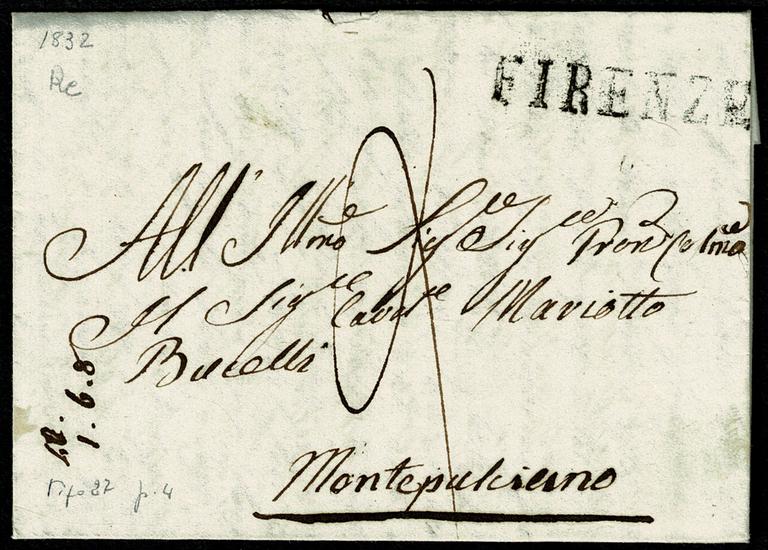 1832
FIRENZE
All' Illmo Sigre Sigre Pron Colmo
Il Sigre Cavre Mariotto
Bucelli
1.6.8
Montepulciano
Tipo 27 p. 4